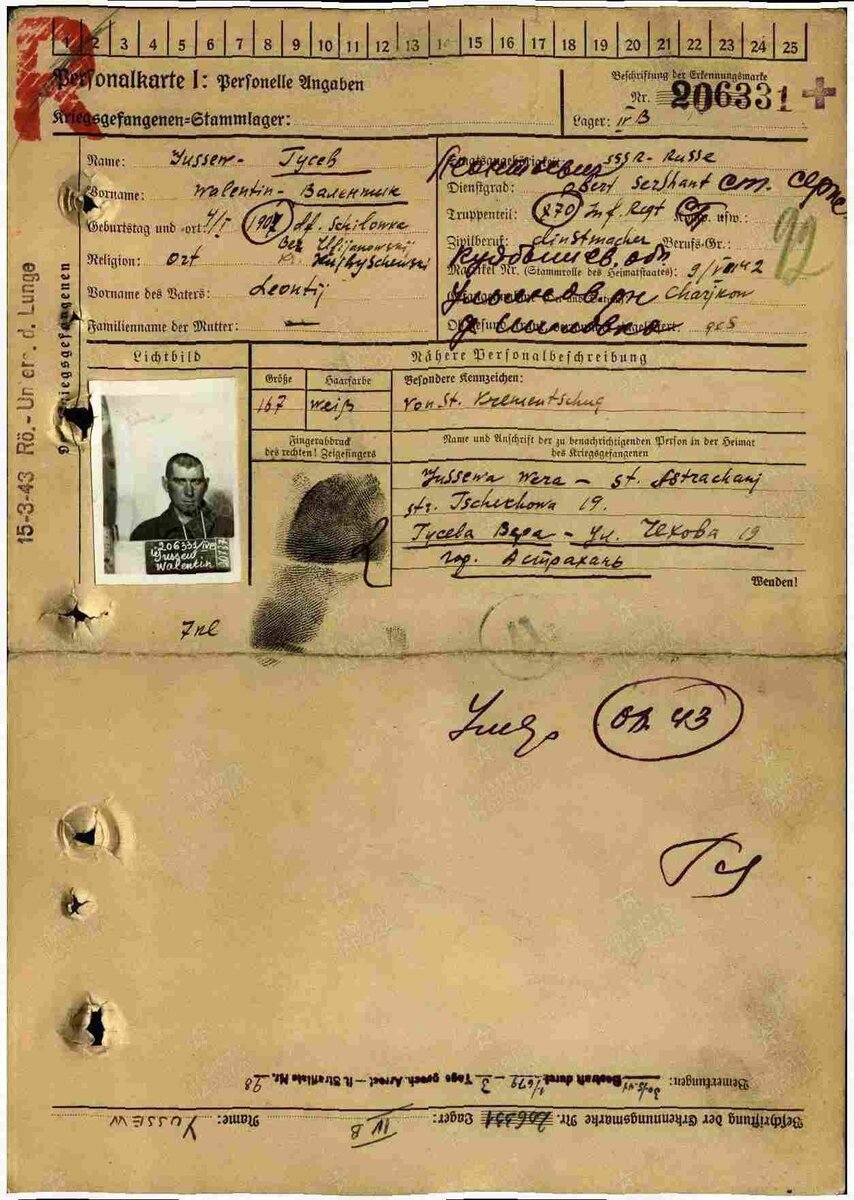 1 2 3 4 5 6 7 8 9 10 11 12 13 14 15 16 17 18 19 20 21 22 23 24 25
Personalkarte I: Personelle Angaben
Kriegsgefangenen-Stammlager:
Beschriftung der Erkennungsmarke
Nr. 206331
Lager: IV B
Name: Jussew - Гусев
Vorname: Walentin - Валентин
Geburtstag und -ort: 4/I 1907 df. Schilowka
Bez Uljanowskij
Kr. Kujbyschewski
Religion: Ort
Vorname des Vaters: Leontij
Familienname der Mutter: —
Staatsangehörigkeit: SSSR - Russe
Леонтьевич
Dienstgrad: Ober Sershant ст. серж.
Truppenteil: 270 Inf. Regt СП Komp. usw.:
Zivilberuf: Berufs-Gr.:
Куйбышев. обл
Matrikel Nr. (Stammrolle des Heimatstaates): 9/VIII 42
Charjkow
Ульяновск рн
ges
92
15-3-43 Rö.-Unters. d. Lunge
Des Kriegsgefangenen
Lichtbild
Nähere Personalbeschreibung
Größe
Haarfarbe
Besondere Kennzeichen:
167
weiß
von St. Krementschug
Fingerabdruck
des rechten! Zeigefingers
Name und Anschrift der zu benachrichtigenden Person in der Heimat
des Kriegsgefangenen
Jussewa Wera - st. Astrachanj
str. Tschechowa 19.
Гусева Вера - ул. Чехова 19
гор. Астрахань
206331/IVB
Jussew
Walentin
Wenden!
оп. 43
Bemerkungen:
Bestraft durch 1/679 - 3 Tage gesch. Arrest - lt. Strafliste Nr. 98
Beschriftung der Erkennungsmarke Nr. 206331 Lager: IV B Name: JUSSEW